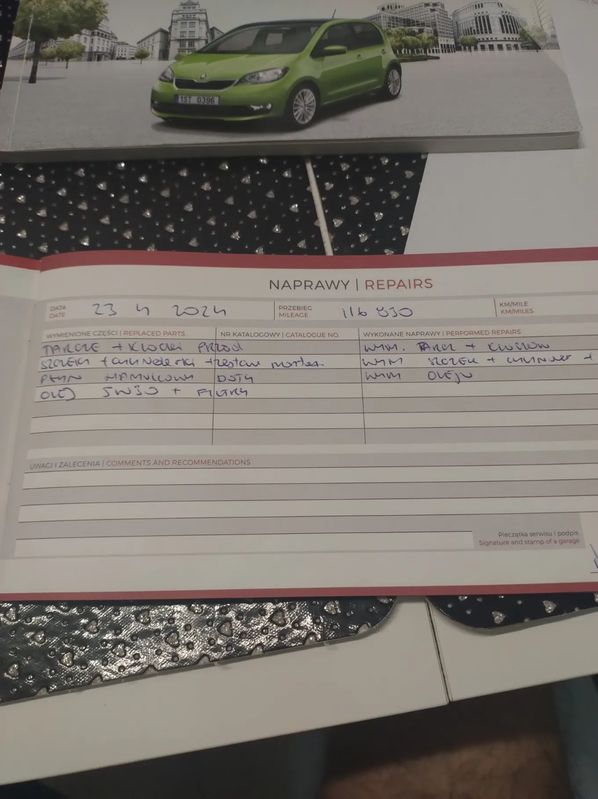 1ST 0396
NAPRAWY | REPAIRS
DATA
DATE
23 4 2024
PRZEBIEG
MILEAGE
116 930
KM/MILE
KM/MILES
WYMIENIONE CZĘŚCI | REPLACED PARTS
NR KATALOGOWY | CATALOGUE NO.
WYKONANE NAPRAWY | PERFORMED REPAIRS
TARCZE + KLOCKI PRZÓD
WYM. TARCZ + KLOCKÓW
SZCZĘKI + CYLINDERKI + zestaw
WYM SZCZĘK +
PŁYN HAMULCOWY DOT4
WYM OLEJU
OLEJ 5W30 + FILTRY
UWAGI I ZALECENIA | COMMENTS AND RECOMMENDATIONS
Pieczątka serwisu i podpis
Signature and stamp of a garage